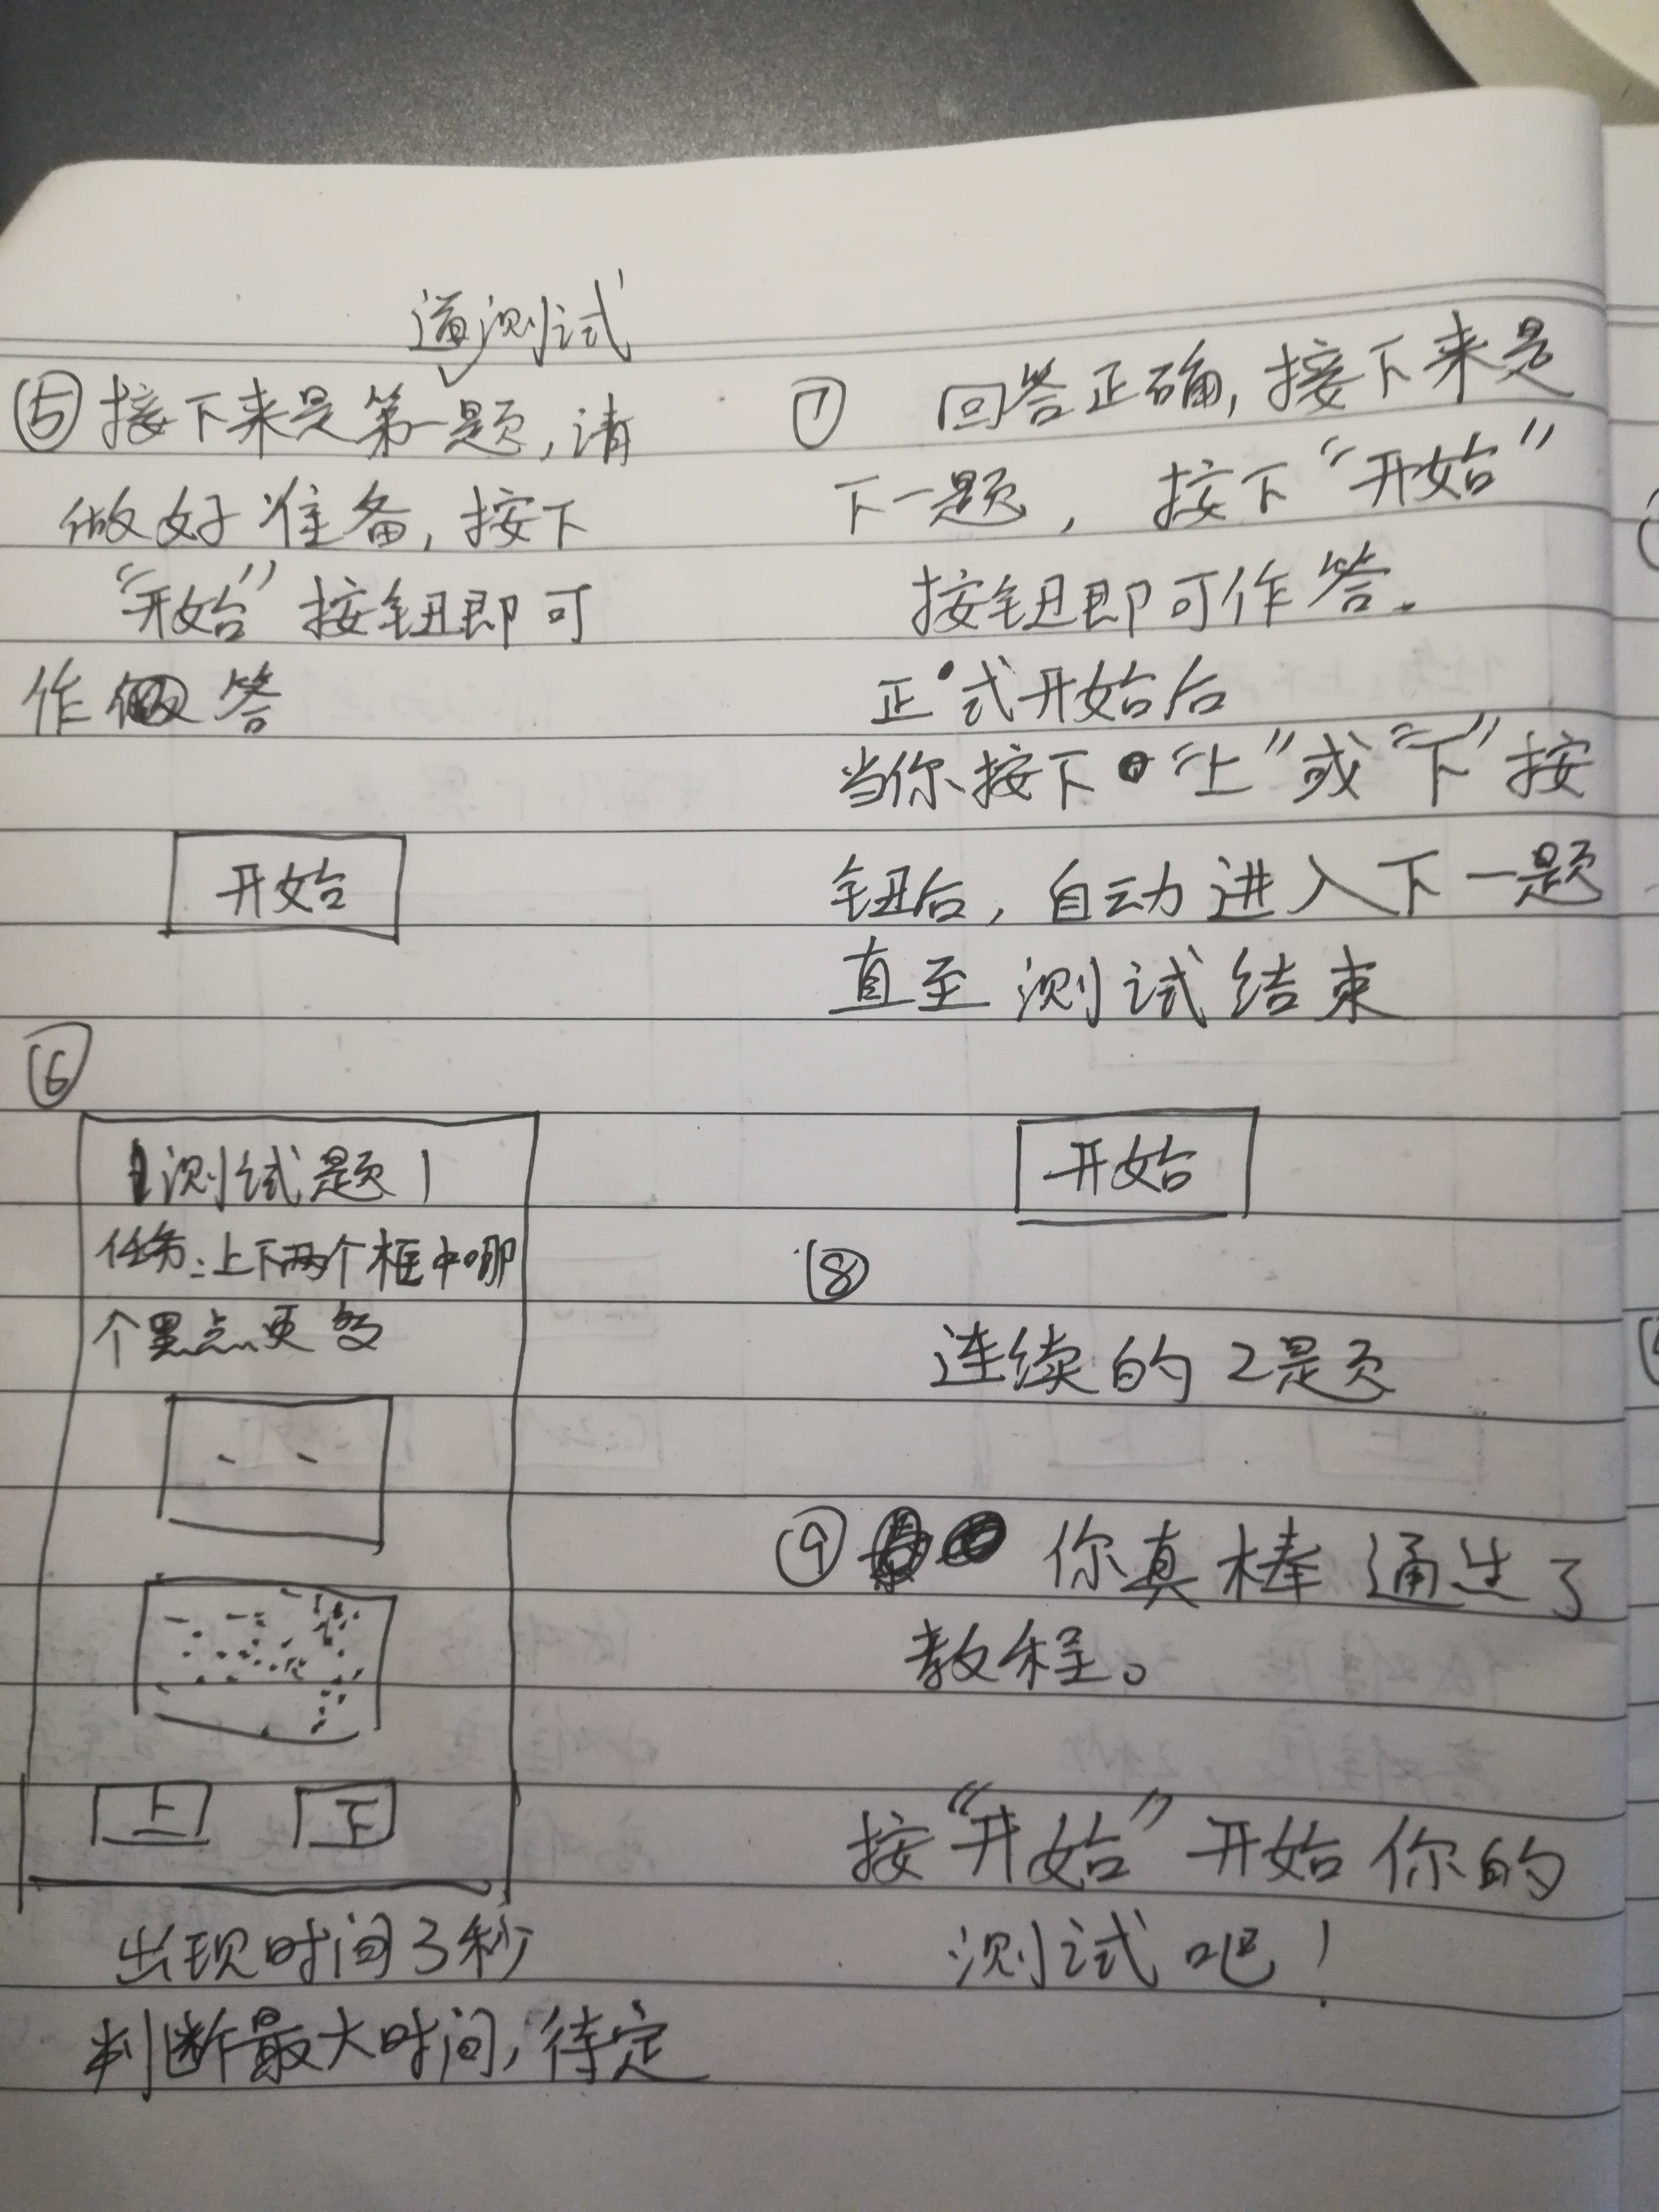 道测试
⑤接下来是第一题,请
做好准备,按下
“开始”按钮即可
作答
开始
⑥
测试题1
任务:上下两个框中哪
个黑点更多
上 下
出现时间3秒
判断最大时间,待定
⑦ 回答正确,接下来是
下一题,按下“开始”
按钮即可作答.
正式开始后
当你按下“上”或“下”按
钮后,自动进入下一题
直至测试结束
开始
⑧
连续的2题
⑨ 你真棒通过了
教程。
按“开始”开始你的
测试吧!